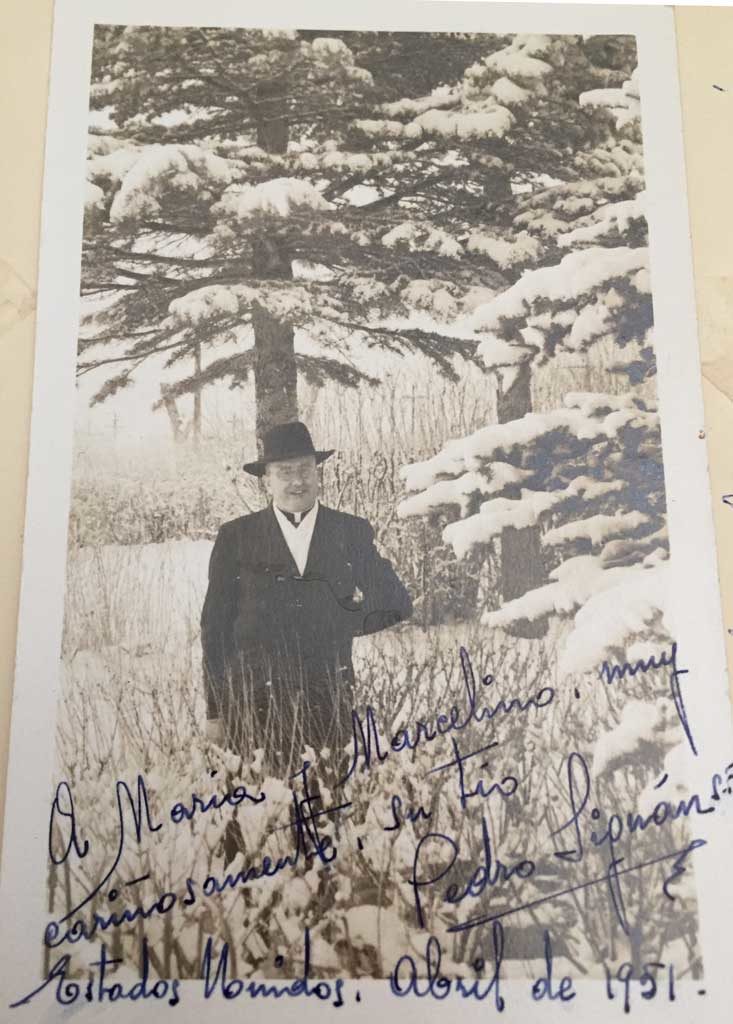 A Maria y Marcelino, muy
cariñosamente, su tío
Pedro Siguán
Estados Unidos, Abril de 1951.